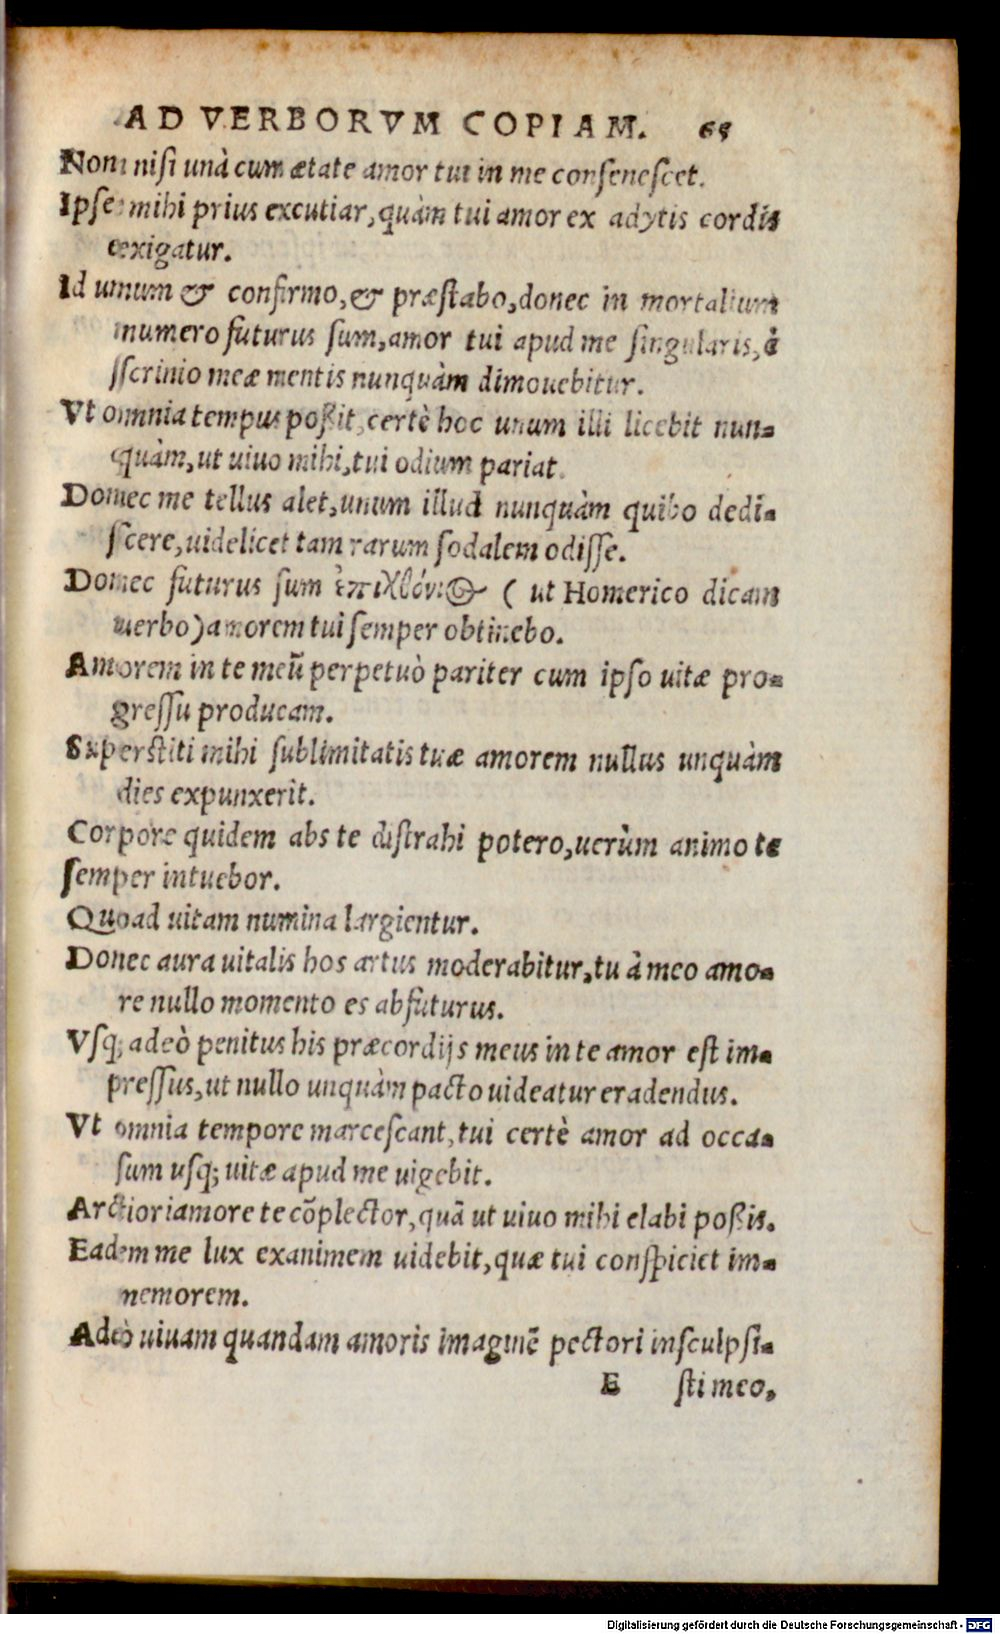 AD VERBORVM COPIAM. 65
Non nisi unà cum ætate amor tui in me consenescet.
Ipse mihi prius excutiar, quàm tui amor ex adytis cordis
exigatur.
Id unum & confirmo, & præstabo, donec in mortalium
numero futurus sum, amor tui apud me singularis, è
scrinio meæ mentis nunquàm dimouebitur.
Vt omnia tempus poßit, certè hoc unum illi licebit nun-
quàm, ut uiuo mihi, tui odium pariat.
Donec me tellus alet, unum illud nunquàm quibo dedi-
scere, uidelicet tam rarum sodalem odisse.
Donec futurus sum ἐπιχθόνιος ( ut Homerico dicam
uerbo) amorem tui semper obtinebo.
Amorem in te meũ perpetuò pariter cum ipso uitæ pro-
gressu producam.
Superstiti mihi sublimitatis tuæ amorem nullus unquàm
dies expunxerit.
Corpore quidem abs te distrahi potero, uerùm animo te
semper intuebor.
Quoad uitam numina largientur.
Donec aura uitalis hos artus moderabitur, tu à meo amo-
re nullo momento es abfuturus.
Vsq; adeò penitus his præcordijs meus in te amor est im-
pressus, ut nullo unquàm pacto uideatur eradendus.
Vt omnia tempore marcescant, tui certè amor ad occa-
sum usq; uitæ apud me uigebit.
Arctiori amore te cõplector, quã ut uiuo mihi elabi poßis.
Eadem me lux exanimem uidebit, quæ tui conspiciet im-
memorem.
Adeò uiuam quandam amoris imaginẽ pectori insculpsi-
E sti meo,
Digitalisierung gefördert durch die Deutsche Forschungsgemeinschaft - DFG